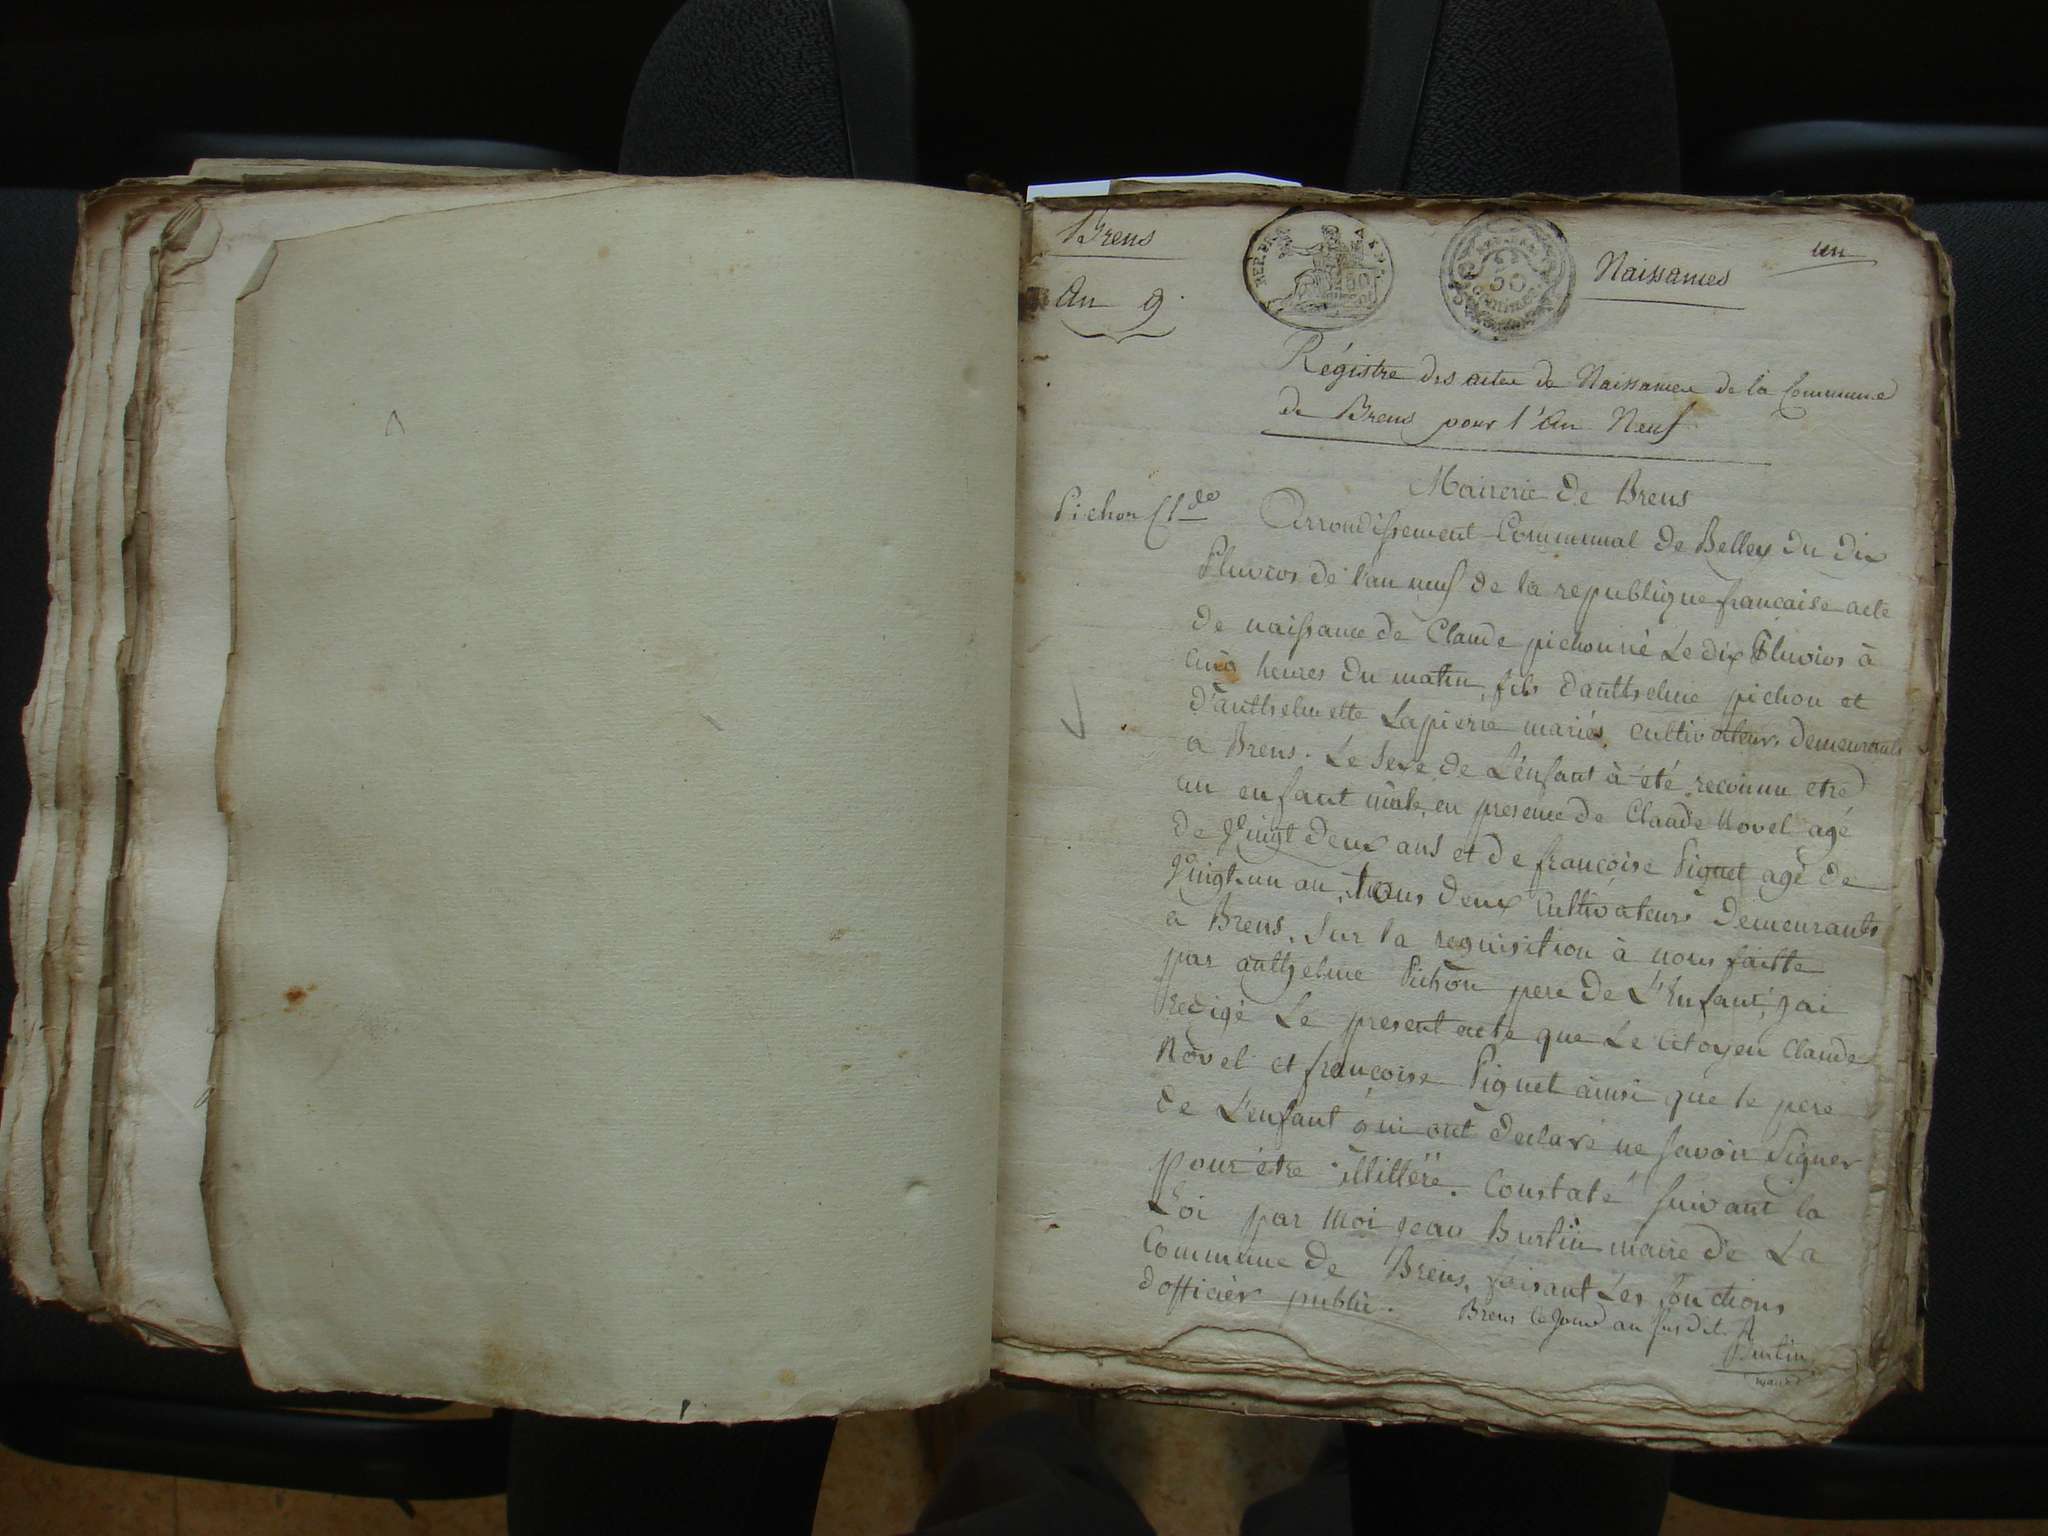 Brens
An 9.
REP. FRA.
50
Naissances
un
Régistre des actes de Naissances de la Commune
de Brens pour l'An Neuf
Mairerie de Brens
Pichon Cl.de
Arrondissement Communal de Belley du dix
Pluvios de l'an neuf de la republique francaise acte
de naissance de Claude pichon né Le dix Pluvios à
cinq heures du matin, fils d'anthelme pichon et
d'anthelmette Lapierre mariés, cultivateurs demeurants
a Brens. Le Sexe de L'enfant à été reconnu etre
un enfant mâle, en presence de Claude Novel agé
de Vingt deux ans et de françoise Piguet agé de
Vingt-un an, tous deux cultivateurs demeurants
a Brens. Sur la requisition à nous faitte
par anthelme Pichon pere de L'Enfant, jai
redigé Le present acte que Le Citoyen Claude
Novel et françoise Piguet ainsi que le pere
de L'enfant qui ont declaré ne savoir Signer
pour être illitéré. Constaté suivant la
Loi par Moi jean Burtin maire de La
Commune de Brens, faisant Les fonctions
d'officier public.
Brens le jour an susdit.
Burtin
maire